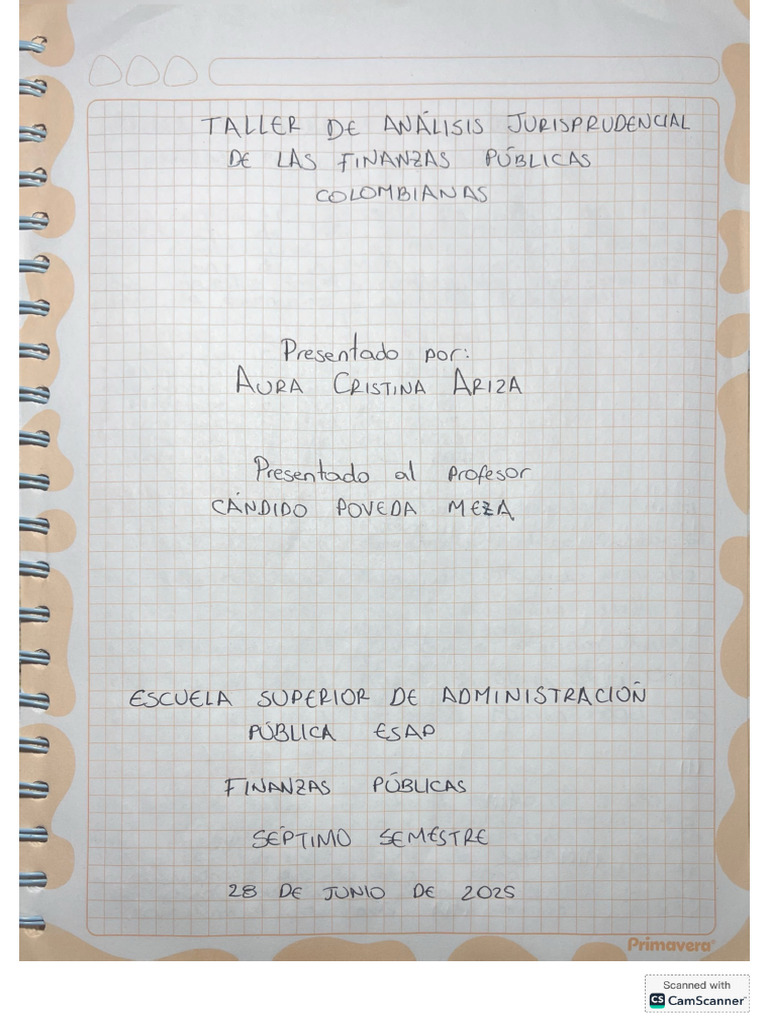 TALLER DE ANÁLISIS JURISPRUDENCIAL
DE LAS FINANZAS PÚBLICAS
COLOMBIANAS
Presentado por:
AURA CRISTINA ARIZA
Presentado al profesor
CÁNDIDO POVEDA MEZA
ESCUELA SUPERIOR DE ADMINISTRACIÓN
PÚBLICA ESAP
FINANZAS PÚBLICAS
SÉPTIMO SEMESTRE
28 DE JUNIO DE 2025
Primavera
Scanned with
CS CamScanner